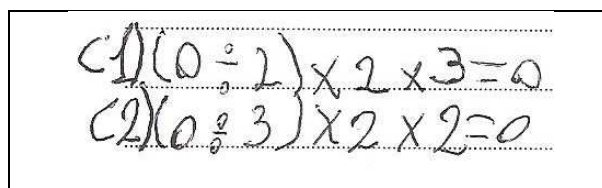 (1)(0÷2)×2×3=0
(2)(0÷3)×2×2=0